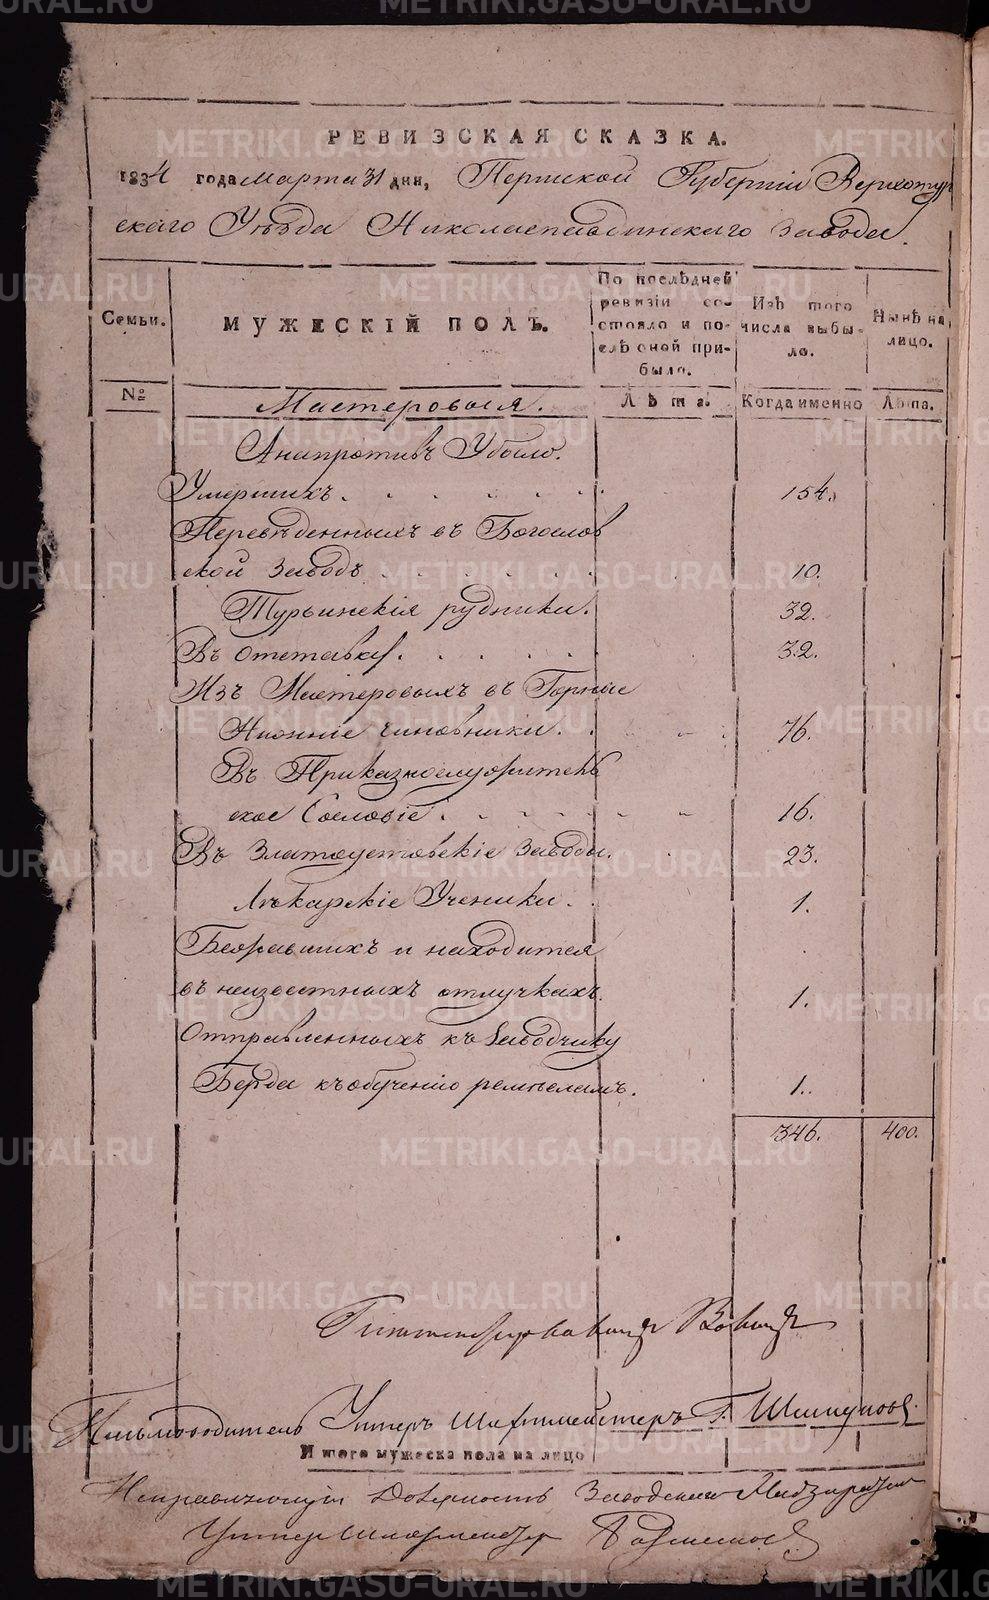 РЕВИЗСКАЯ СКАЗКА.
1834 года марта 31 дня, Пермской Губерніи Верхотур
скаго Уѣзда Николаепавдинскаго завода.
Семьи.
МУЖЕСКІЙ ПОЛЪ.
По послѣдней ревизіи состояло и послѣ оной прибыло.
Изъ того числа выбыло.
Нынѣ на лицо.
№
Мастеровыя.
Лѣта.
Когда именно
Лѣта.
Анапротивъ Убыло.
Умершихъ. 154.
Переведенныхъ въ Богослов
ской заводъ 10.
Турьинскія рудники. 32.
Въ отставку. 32.
Изъ Мастеровыхъ въ Горные
Нижніе чиновники. 76.
Въ Приказнослужитель
ское Сословіе. 16.
Въ Златоустовскіе заводы. 23.
Лѣкарскіе Ученики. 1.
Бежавшихъ и находится
въ неизвестныхъ отлучкахъ. 1.
Отправленныхъ къ заводчику
Берда къ обученію ремѣсламъ. 1.
346. 400.
Письмоводитель Унтеръ Шихтмейстеръ Г.
И того мужеска пола на лицо
Исправляющій должность Заводскаго Надзирателя
Унтер шихтмейстер
METRIKI.GASO-URAL.RU